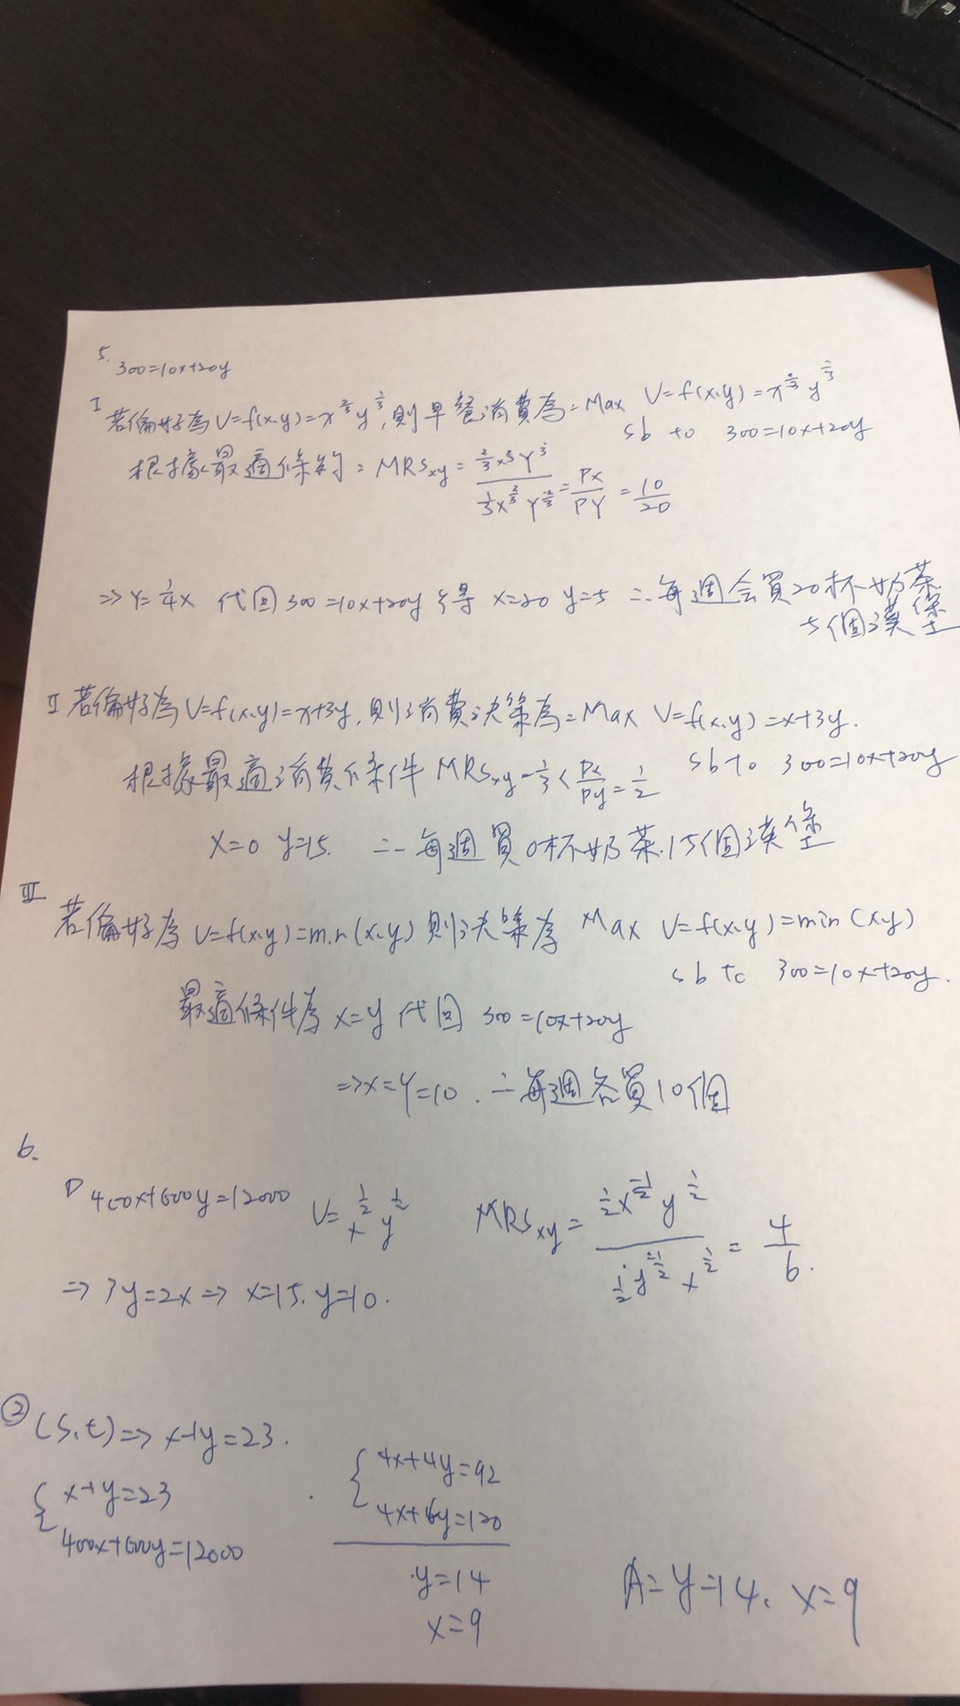 5.
300=10x+20y
I 若偏好為U=f(x,y)=x^{2/3}y^{1/3},則早餐消費為=Max U=f(x,y)=x^{2/3}y^{1/3}
sb to 300=10x+20y
根據最適條約=MRSxy=\frac{\frac{2}{3}x^{\frac{1}{3}}y^{\frac{1}{3}}}{\frac{1}{3}x^{\frac{2}{3}}y^{-\frac{2}{3}}}=\frac{Px}{PY}=\frac{10}{20}
⇒Y=\frac{1}{4}x 代回300=10x+20y得 x=20 y=5 ∴每週会買20杯奶茶
5個漢堡
II 若偏好為U=f(x,y)=x+3y,則消費決策為=Max U=f(x,y)=x+3y.
sb to 300=10x+20y
根據最適消費條件 MRSxy=\frac{1}{3}<\frac{Px}{Py}=\frac{1}{2}
x=0 y=15. ∴每週買0杯奶茶.15個漢堡
III
若偏好為U=f(x,y)=min(x,y)則決策為 Max U=f(x,y)=min(xy)
sb to 300=10x+20y.
最適條件為x=y代回 300=10x+20y
⇒x=Y=10. ∴每週各買10個
6.
400x+600y=12000 U=x^{1/2}y^{1/2} MRSxy=\frac{\frac{1}{2}x^{-\frac{1}{2}}y^{\frac{1}{2}}}{\frac{1}{2}y^{-\frac{1}{2}}x^{\frac{1}{2}}}=\frac{4}{6}.
⇒3y=2x⇒x=15,y=10.
② (s,t)⇒x+y=23.
{x+y=23
400x+600y=12000
{4x+4y=92
4x+6y=120
y=14
x=9
A=y=14, x=9